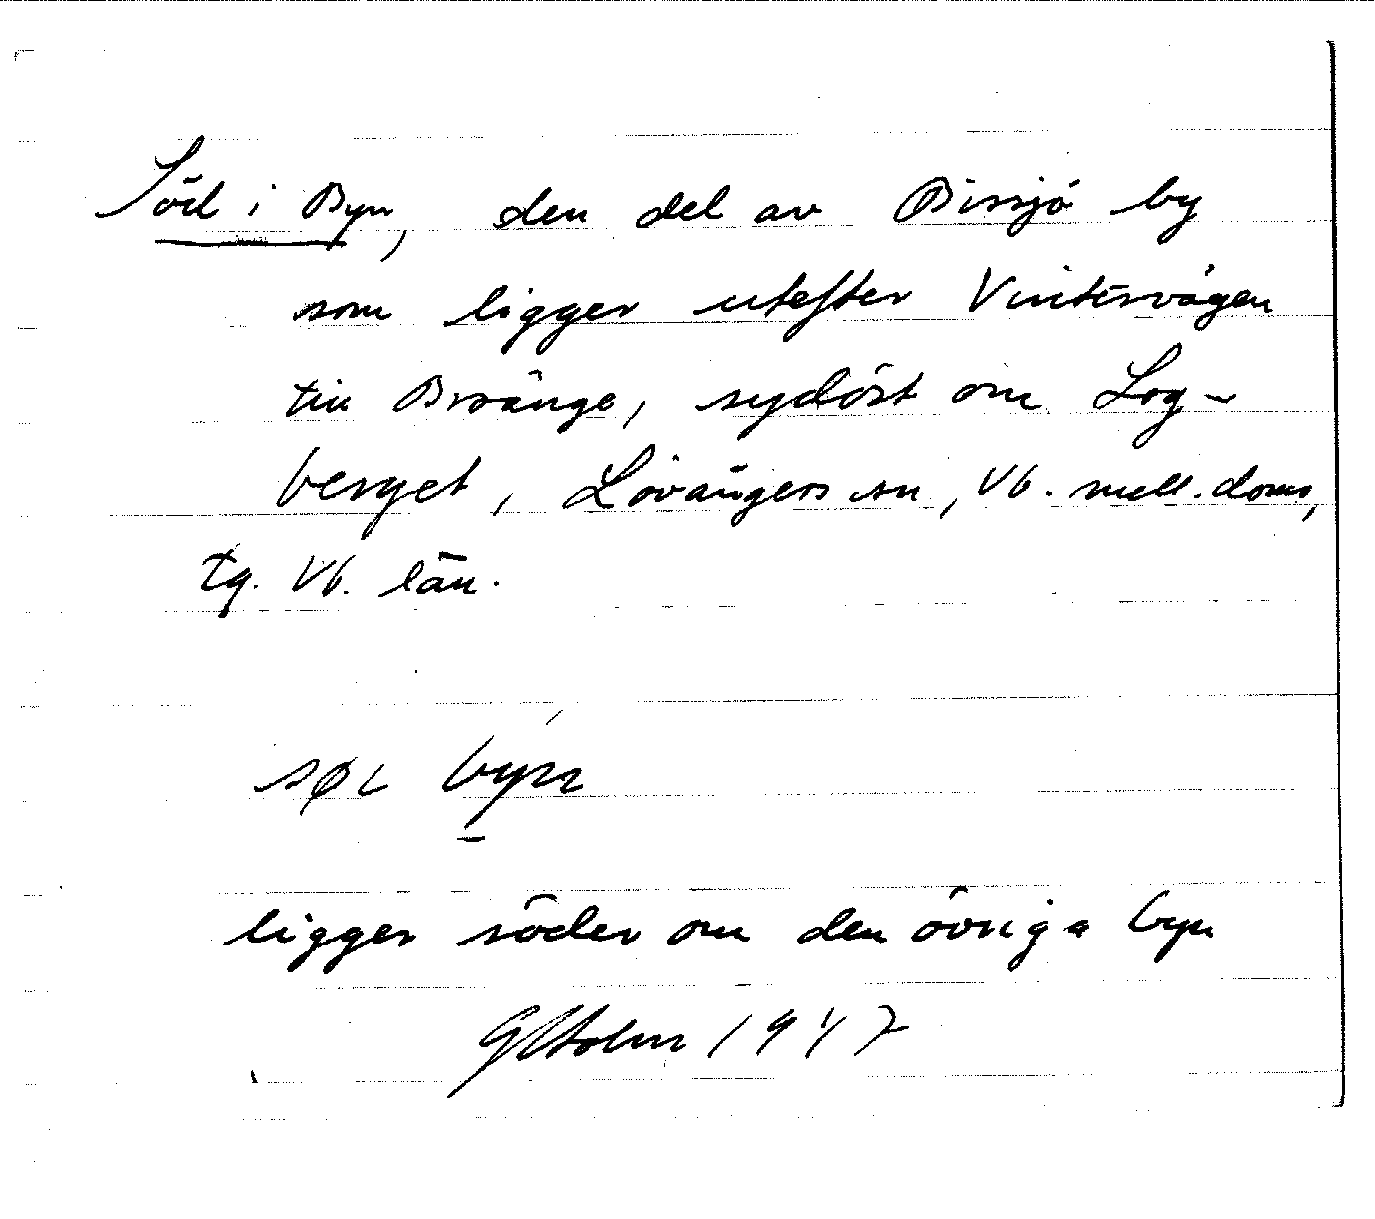 Söd i Byn, den del av Bissjö by
som ligger utefter Vintervägen
till Bränge, sydöst om Log-
berget, Lövångers sn, Vb. mell. doms,
tg. Vb. län.
byn
ligger söder om den övriga byn
G Holm 1947